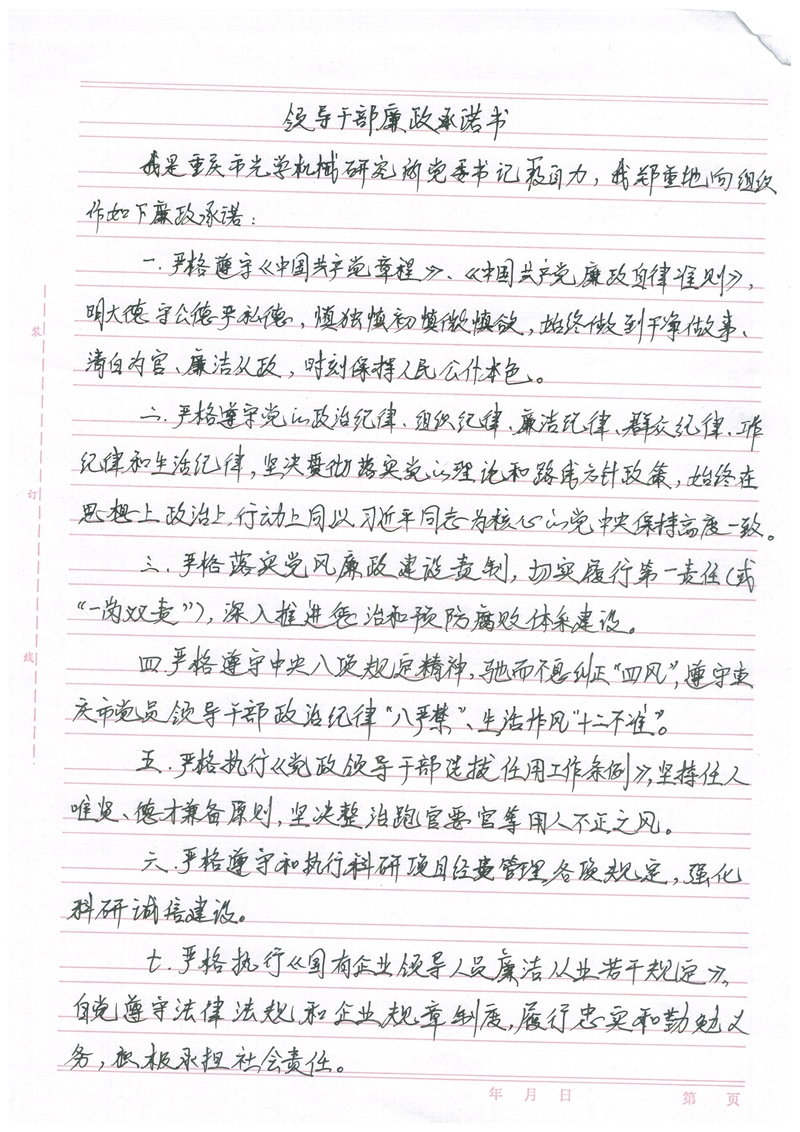 领导干部廉政承诺书
我是重庆市光学机械研究所党委书记 自力，我郑重地向组织
作如下廉政承诺：
一.严格遵守《中国共产党章程》、《中国共产党廉政自律准则》，
明大德守公德严私德，慎独慎初慎微慎欲，始终做到干净做事、
清白为官、廉洁从政，时刻保持人民公仆本色。
二.严格遵守党的政治纪律、组织纪律、廉洁纪律、群众纪律、工作
纪律和生活纪律，坚决贯彻落实党的理论和路线方针政策，始终在
思想上政治上行动上同以习近平同志为核心的党中央保持高度一致。
三.严格落实党风廉政建设责制，切实履行第一责任（或
“一岗双责”），深入推进惩治和预防腐败体系建设。
四.严格遵守中央八项规定精神，驰而不息纠正“四风”，遵守重
庆市党员领导干部政治纪律“八严禁”、生活作风“十二不准”。
五.严格执行《党政领导干部选拔任用工作条例》，坚持任人
唯贤、德才兼备原则，坚决整治跑官要官等用人不正之风。
六.严格遵守和执行科研项目经费管理各项规定，强化
科研诚信建设。
七.严格执行《国有企业领导人员廉洁从业若干规定》，
自觉遵守法律法规和企业规章制度，履行忠实和勤勉义
务，积极承担社会责任。
装
订
线
年 月 日 第 页